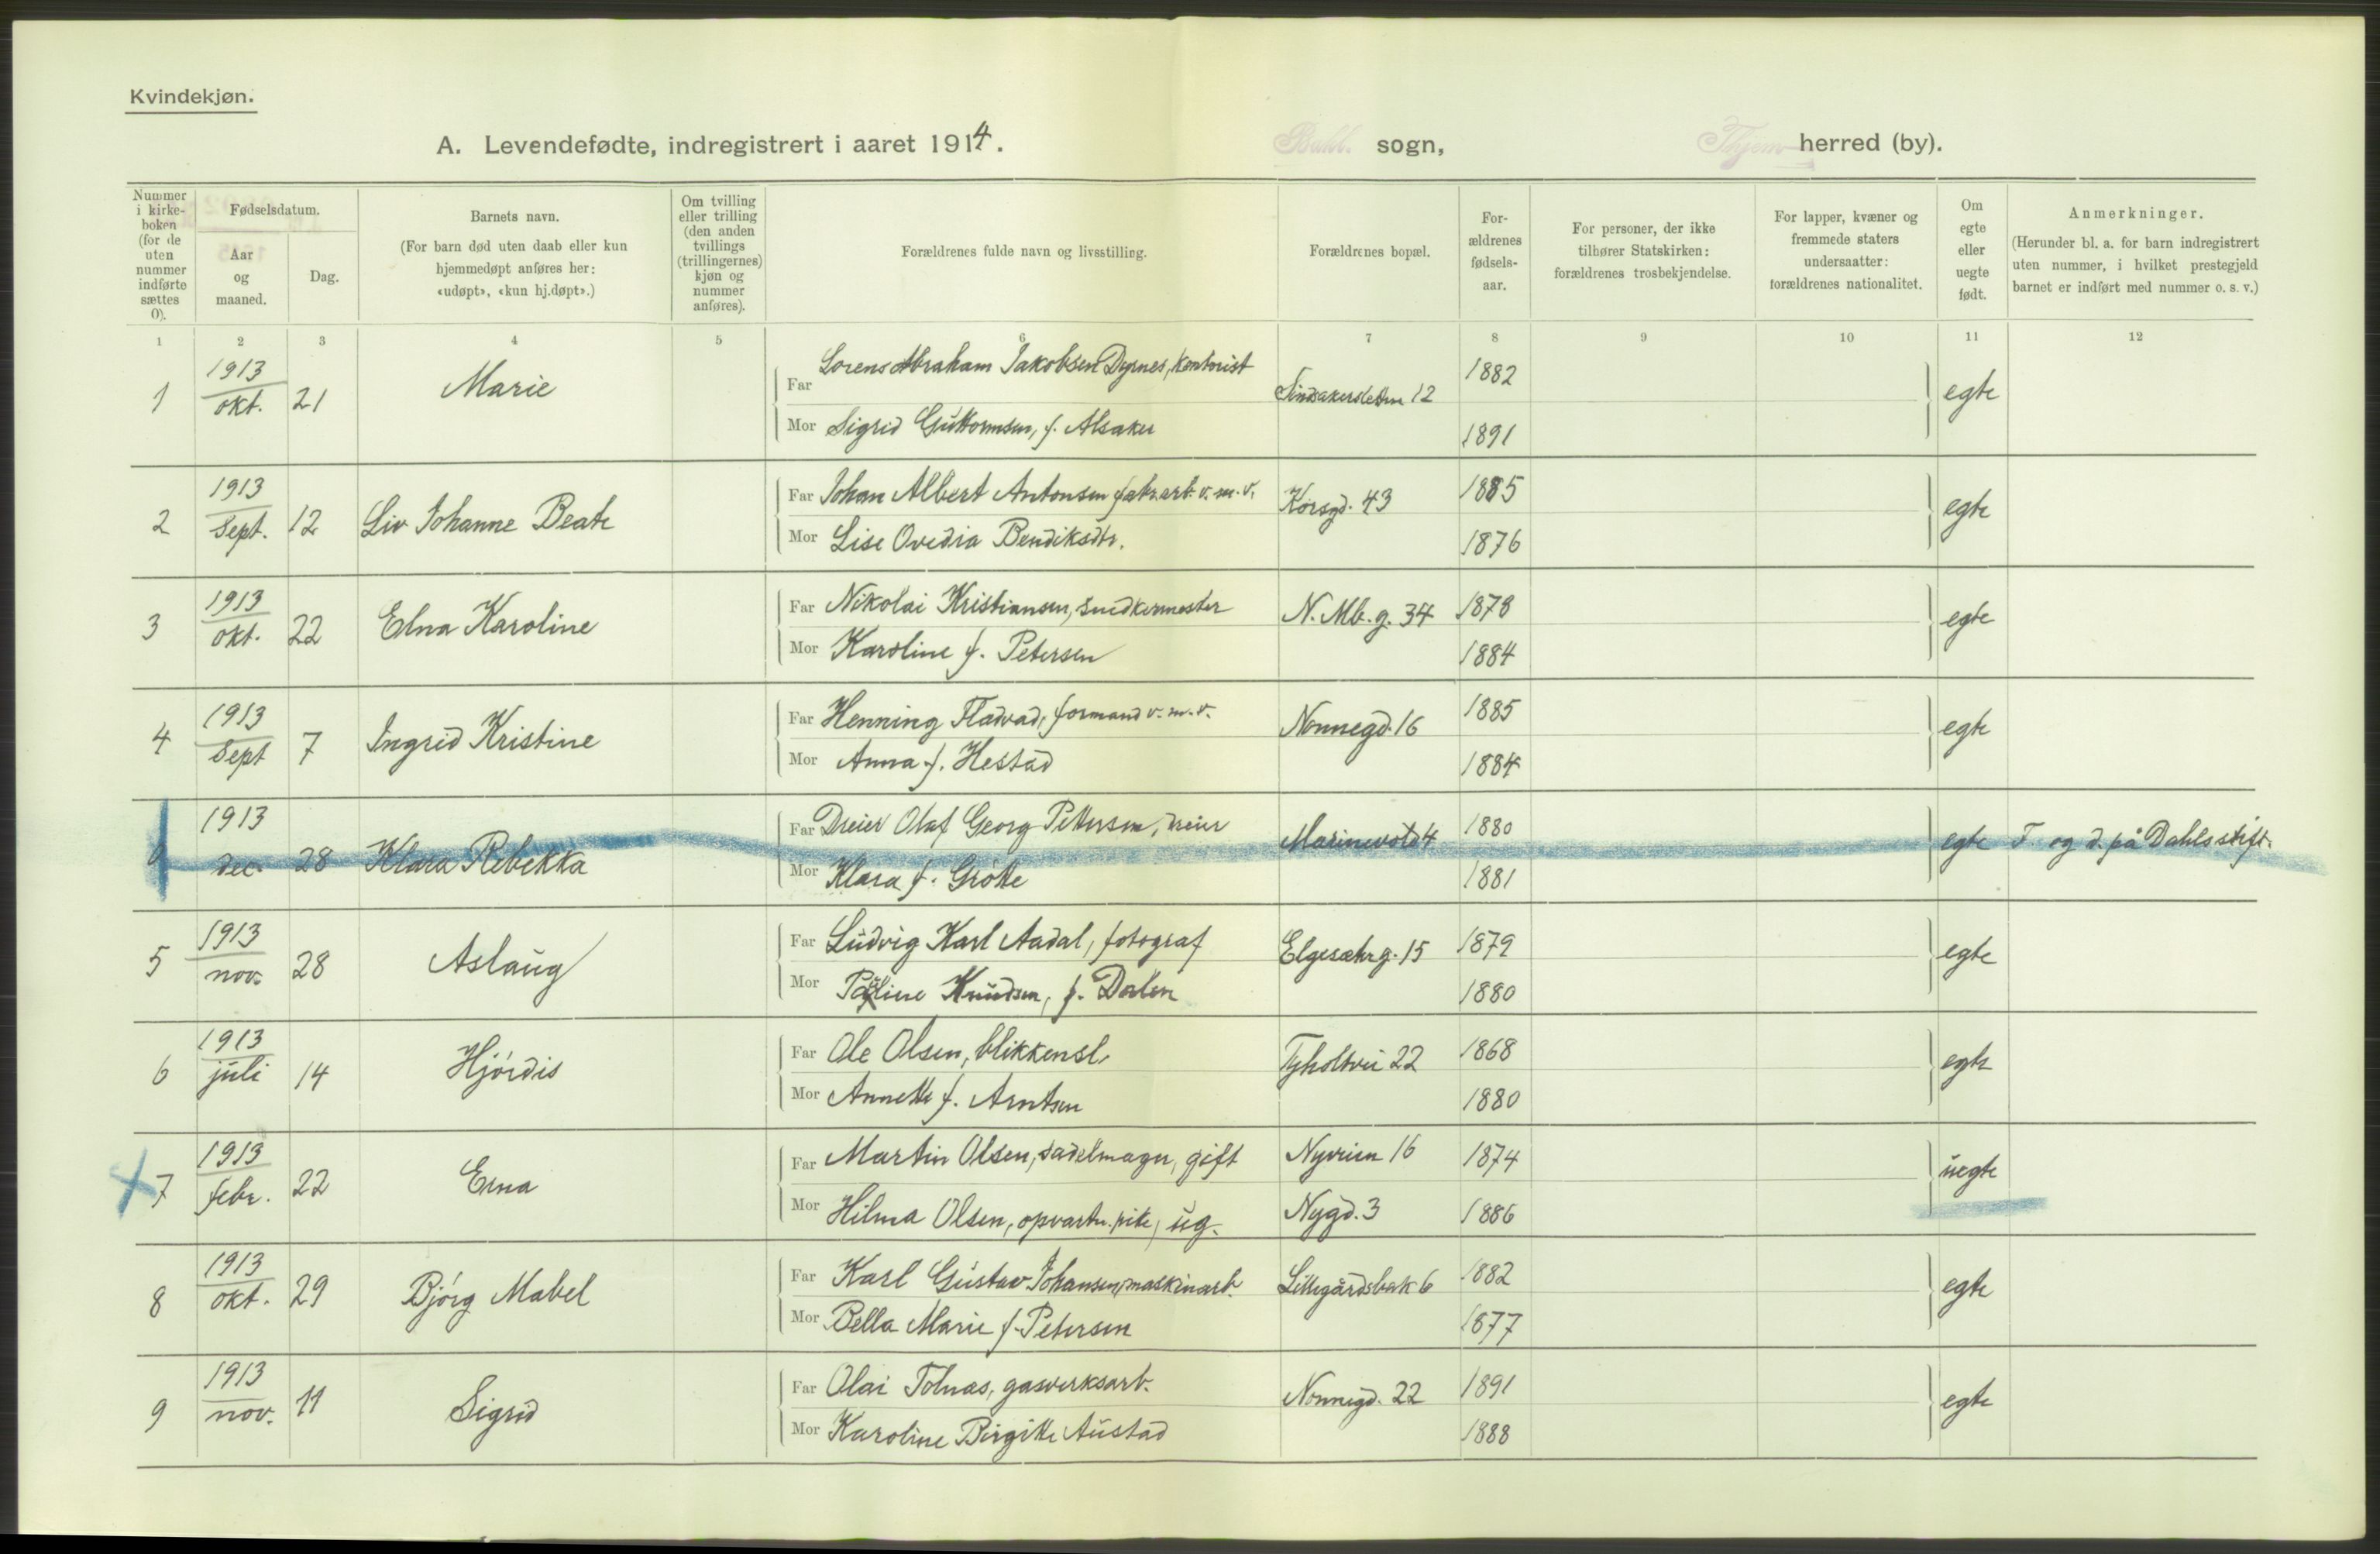 Kvindekjøn.
A. Levendefødte, indregistrert i aaret 1914. Bakl. sogn, Thjem herred (by).
Nummer i kirke-boken (for de uten nummer indførte sættes 0).
Fødselsdatum.
Aar og maaned.
Dag.
Barnets navn.
(For barn død uten daab eller kun hjemmedøpt anføres her: «udøpt», «kun hj.døpt».)
Om tvilling eller trilling (den anden tvillings (trillingernes) kjøn og nummer anføres).
Forældrenes fulde navn og livsstilling.
Forældrenes bopæl.
For-ældrenes fødsels-aar.
For personer, der ikke tilhører Statskirken: forældrenes trosbekjendelse.
For lapper, kvæner og fremmede staters undersaatter: forældrenes nationalitet.
Om egte eller uegte født.
Anmerkninger.
(Herunder bl. a. for barn indregistrert uten nummer, i hvilket prestegjeld barnet er indført med nummer o. s. v.)
1 2 3 4 5 6 7 8 9 10 11 12
1 1913 okt. 21 Marie
Far Lorens Abraham Jakobsen Dyrnes, kontorist 12 1882 egte
Mor Sigrid Guttormsen, f. Alsaker 1891
2 1913 Sept. 12 Liv Johanne Beate
Far Johan Albert Antonsen fabr.arb. v. m. v. Korsgd. 43 1885 egte
Mor Lise Ovedia Bendiksdtr. 1876
3 1913 okt. 22 Elna Karoline
Far Nikolai Kristiansen, snedkermester N. Mb. g. 34 1878 egte
Mor Karoline f. Petersen 1884
4 1913 Sept 7 Ingrid Kristine
Far Henning Fladvad, formand v. m. v. Nonnegd. 16 1885 egte
Mor Anna f. Hestad 1884
0 1913 dec. 28 Klara Rebekka
Far Dreier Olaf Georg Pettersen, dreier Marinevold 4 1880 egte F. og d. på Dahls stift.
Mor Klara f. Grøtte 1881
5 1913 nov. 28 Aslaug
Far Ludvig Karl Aadal, fotograf Elgesæhrg. 15 1879 egte
Mor Pauline Knudsen, f. Dalen 1880
6 1913 juli 14 Hjørdis
Far Ole Olsen, blikkensl. Tyholtvei 22 1868 egte
Mor Annette f. Arntsen 1880
7 1913 febr. 22 Erna
Far Martin Olsen, sadelmager, gift Nyveien 16 1874 uegte
Mor Hilma Olsen, opvartn. pike, ug. Nygd. 3 1886
8 1913 okt. 29 Bjørg Mabel
Far Karl Gustav Johansen, maskinarb. Lillegårdsbak 6 1882 egte
Mor Bella Marie f. Petersen 1877
9 1913 nov. 11 Sigrid
Far Olai Tolnas, gasverksarb. Nonnegd. 22 1891 egte
Mor Karoline Birgitte Austad 1888